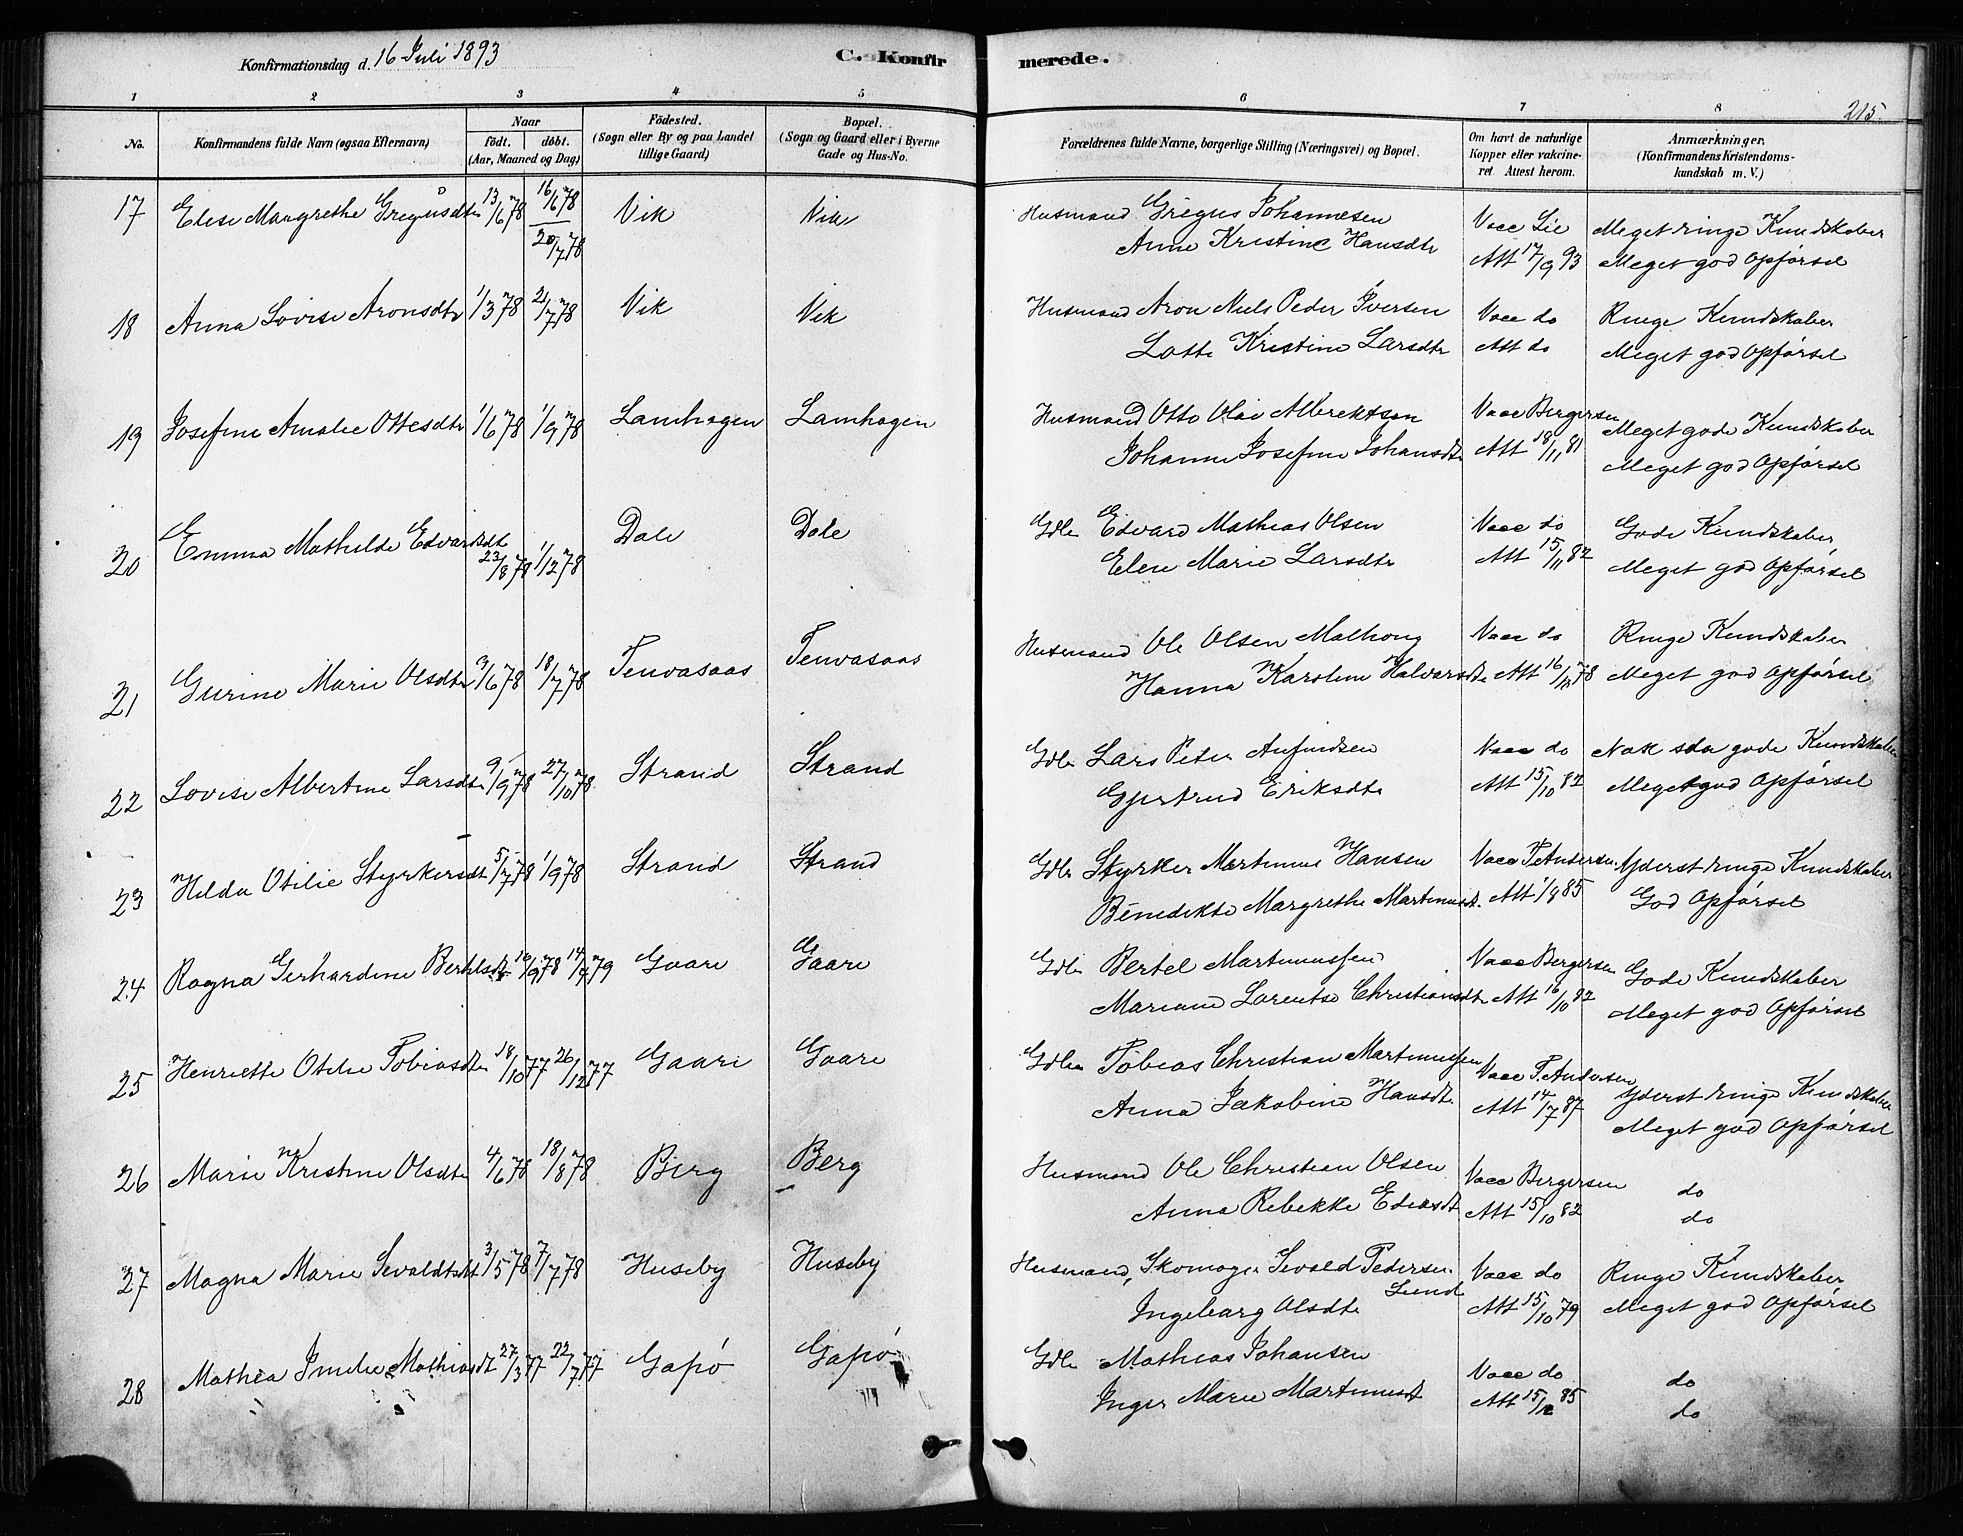 Konfirmationsdag d. 16 Juli 1893
C. Konfirmerede.
215.
1 2 3 4 5 6 7 8
No.
Konfirmandens fulde Navn (ogsaa Efternavn)
Naar
født. døbt.
(Aar, Maaned og Dag)
Födested.
(Sogn eller By og paa Landet
tillige Gaard)
Bopæl.
(Sogn og Gaard eller i Byerne
Gade og Hus-No.
Forældrenes fulde Navne, borgerlige Stilling (Næringsvei) og Bopæl.
Om havt de naturlige
Kopper eller vakcine-
ret. Attest herom.
Anmærkninger.
(Konfirmandens Kristendoms-
kundskab m. V.)
17 Elise Margrethe Gregusdtr 13/6 78 16/6 78 Vik Vik Husmand Gregus Johannesen Vacc Lie Meget ringe Kundskaber
20/7 78 Anne Kristine Hansdtr Att 17/9 93 Meget god Opførsel
18 Anna Lovise Aronsdtr 1/3 78 21/7 78 Vik Vik Husmand Aron Niels Peder Iversen Vacc do Ringe Kundskaber
Lotte Kristine Larsdtr Att do Meget god Opførsel
19 Josefine Amalie Ottesdtr 1/6 78 1/9 78 Lamhagen Lamhagen Husmand Otto Olai Albrektsen Vacc Bergersen Meget gode Kundskaber
Johanne Josefine Johansdtr Att 18/11 81 Meget god Opførsel
20 Emma Mathilde Edvardsdt 23/8 78 1/12 78 Dale Dale Gdbr Edvard Mathias Olsen Vacc do Gode Kundskaber
Elen Marie Larsdtr Att 15/11 82 Meget god Opførsel
21 Gurine Marie Olsdtr 3/6 78 18/7 78 Tenvasaas Tenvasaas Husmand Ole Olsen Vacc do Ringe Kundskaber
Hanna Karoline Halvorsdtr Att 16/10 78 Meget god Opførsel
22 Lovise Albertine Larsdtr 9/9 78 27/10 78 Strand Strand Gdbr Lars Peter Anfindsen Vacc do Nok saa gode Kundskaber
Gjertrud Eriksdtr Att 15/10 82 Meget god Opførsel
23 Hilda Otilie Styrkersdt 5/7 78 1/9 78 Strand Strand Gdbr Styrker Martinus Hansen Vacc T. Andersen Yderst ringe Kundskaber
Benedikte Margrethe Martinusd. Att 1/9 85 God Opførsel
24 Ragna Gerhardine Bertelsdtr 16/9 78 14/4 79 Gaare Gaare Gdbr Bertel Martinussen Vacc Bergersen Gode Kundskaber
Mariane Lorentse Christiansdtr Att 16/10 82 Meget god Opførsel
25 Henriette Otilie Tobiasdtr 18/10 77 26/12 77 Gaare Gaare Gdbr Tobias Christian Martinussen Vacc T. Andersen Yderst ringe Kundskaber
Anna Jakobine Hansdt. Att 14/7 87 Meget god Opførsel
26 Marie Kristine Olsdtr 4/6 78 18/8 78 Berg Berg Husmand Ole Christian Olsen Vacc Bergersen do
Anna Rebekke Eliasdt Att 15/10 82 do
27 Magna Marie Sevaldsdt 3/5 78 7/7 78 Huseby Huseby Husmand, Skomager Sevald Pedersen Vacc do Ringe Kundskaber
Lund
Ingeborg Olsdtr Att 15/10 79 Meget god Opførsel
28 Mathea Emilie Mathiasdt 27/3 77 22/7 77 Gapø Gapø Gdbr Mathias Johansen Vacc do do
Inger Marie Martinusdt Att 15/12 85 do